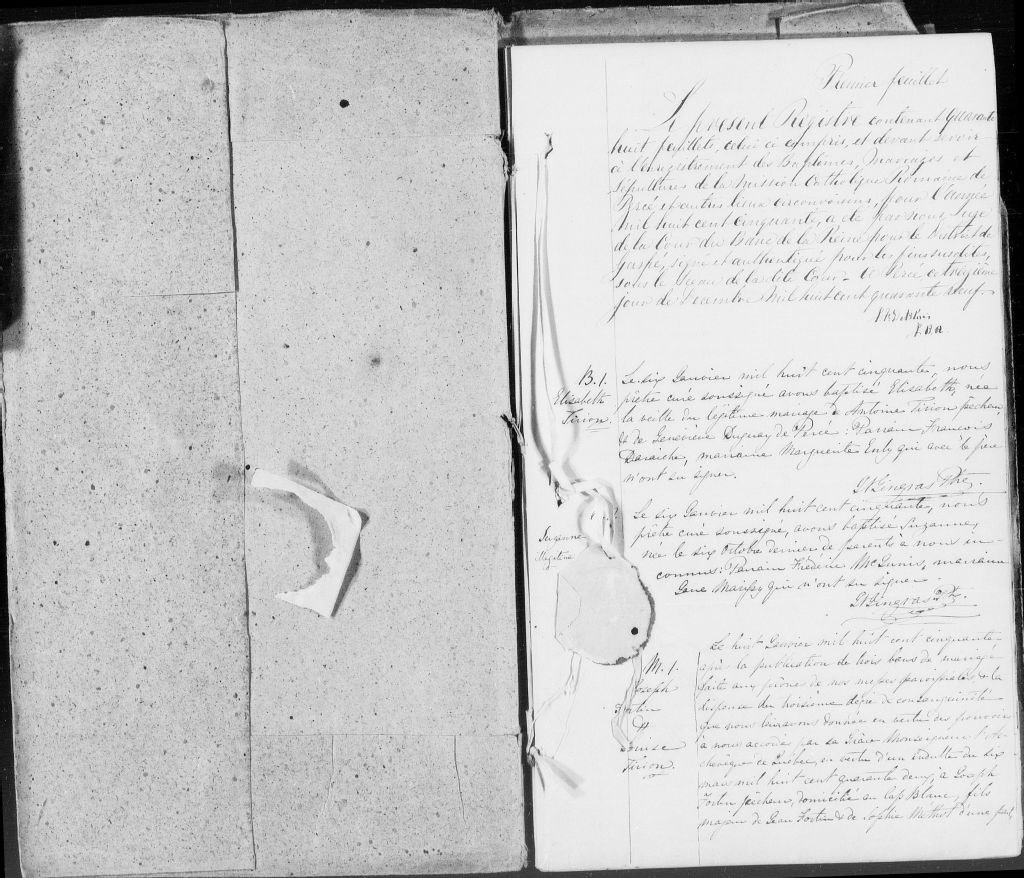 Premier feuillet
Le présent Régistre contenant Quarante
huit feuillets, celui ci compris, et devant servir
à l'enregistrement des Baptêmes, Mariages et
Sépultures de la Mission Catholique Romaine de
Percé et autres lieux circonvoisins, pour l'Année
Mil huit cent Cinquante, a été par nous Juge
de la Cour du Banc de la Reine pour le District de
Gaspé, signé et authentiqué pour les fins susdites,
sous le Sceau de la dite Cour. A Percé ce treizième
jour de Décembre Mil huit cent quarante neuf.
B. 1.
Elisabeth
Tirion.
Le six Janvier mil huit cent cinquante, nous
prêtre curé soussigné avons baptisé Elisabeth, née
la veille du légitime mariage d'Antoine Tirion pêcheur
& de Geneviève Duguay de Percé: Parrain, François
Daraiche, marraine Marguerite Enly qui avec le père
n'ont su signer.
Gingras Ptre.
Suzanne
Le six Janvier mil huit cent cinquante, nous
prêtre curé soussigné, avons baptisé Suzanne,
née le six Octobre dernier de parents à nous in-
connus: Parrain Frédéric McGinnis, marraine
Jane qui n'ont su signer.
Gingras Ptre.
M. 1.
Joseph
Fortin
&
Louise
Tirion.
Le huit Janvier mil huit cent cinquante
après la publication de trois bans de mariage
faite aux prônes de nos messes paroissiales & la
dispense du troisième degré de consanguinité
que nous leur avons donnée en vertu des pouvoirs
à nous accordés par sa Grâce Monseigneur l'Ar-
chevêque de Québec, en vertu d'un indult du six
mars mil huit cent quarante deux, à Joseph
Fortin pêcheur, domicilié au Cap Blanc, fils
majeur de Jean Fortin & de Sophie Methot d'une part,